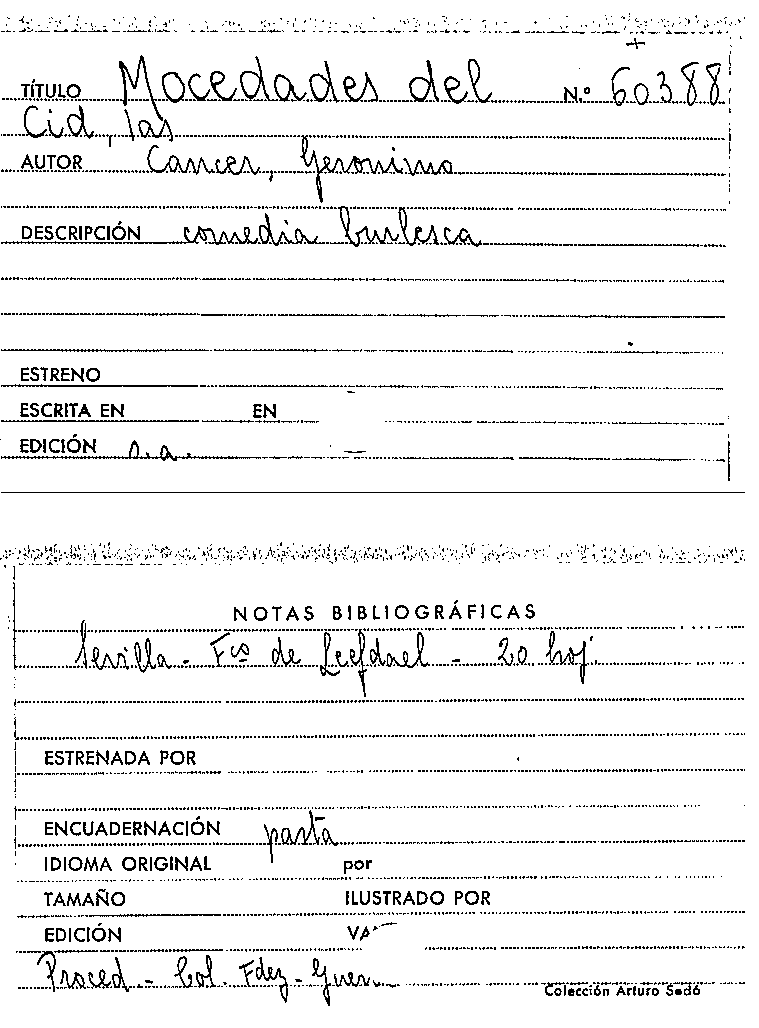 +
TÍTULO Mocedades del N.º 60388
Cid, las
AUTOR Cancer, Geronimo
DESCRIPCIÓN comedia burlesca
ESTRENO
ESCRITA EN EN
EDICIÓN s.a. —
NOTAS BIBLIOGRÁFICAS
Sevilla - Fco de Leefdael - 20 hoj.
ESTRENADA POR
ENCUADERNACIÓN pasta
IDIOMA ORIGINAL por
TAMAÑO ILUSTRADO POR
EDICIÓN
Proced - Col. Fdez - Guerr
Colección Arturo Sedó